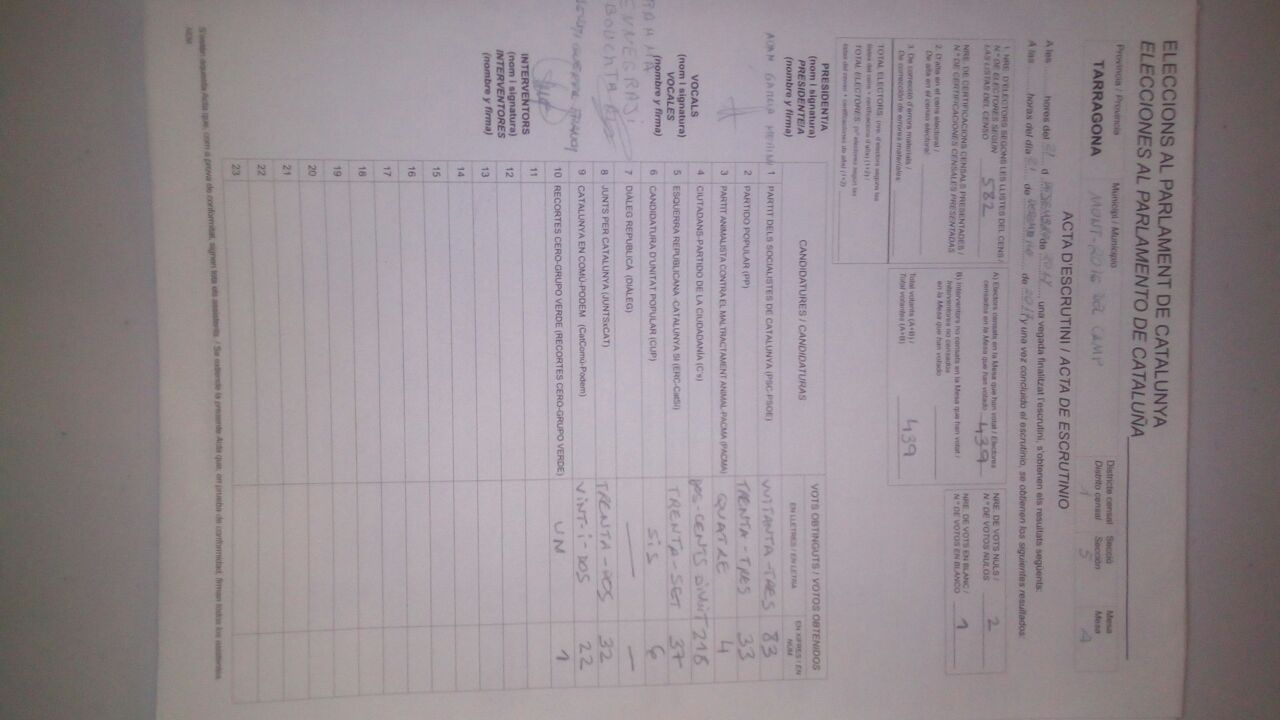 ELECCIONS AL PARLAMENT DE CATALUNYA
ELECCIONES AL PARLAMENTO DE CATALUÑA
Província / Provincia
TARRAGONA
Municipi / Municipio
MONT-ROIG DEL CAMP
Districte censal
Distrito censal
1
Secció
Sección
5
Mesa
Mesa
A
ACTA D'ESCRUTINI / ACTA DE ESCRUTINIO
A les hores del 21 d DESEMBRE de 2017, una vegada finalitzat l'escrutini, s'obtenen els resultats següents:
A las horas del día 21 de de 2017 y una vez concluido el escrutinio, se obtienen los siguientes resultados:
1. NRE. D'ELECTORS SEGONS LES LLISTES DEL CENS /
N.º DE ELECTORES SEGÚN
LAS LISTAS DEL CENSO 582
NRE. DE CERTIFICACIONS CENSALS PRESENTADES /
N.º DE CERTIFICACIONES CENSALES PRESENTADAS
2. D'alta en el cens electoral /
De alta en el censo electoral:
3. De correcció d'errors materials /
De corrección de errores materiales:
TOTAL ELECTORS: (nre. d'electors segons les
llistes del cens + certificacions d'alta) (1+2) /
TOTAL ELECTORES: (n.º electores según las
listas del censo + certificaciones de alta) (1+2)
A) Electors censats en la Mesa que han votat / Electores
censados en la Mesa que han votado 439
B) Interventors no censats en la Mesa que han votat /
Interventores no censados
en la Mesa que han votado
Total votants (A+B) /
Total votantes (A+B) 439
NRE. DE VOTS NULS /
N.º DE VOTOS NULOS 2
NRE. DE VOTS EN BLANC /
N.º DE VOTOS EN BLANCO 1
PRESIDENT/A
(nom i signatura)
PRESIDENTE/A
(nombre y firma)
VOCALS
(nom i signatura)
VOCALES
(nombre y firma)
INTERVENTORS
(nom i signatura)
INTERVENTORES
(nombre y firma)
CANDIDATURES / CANDIDATURAS
VOTS OBTINGUTS / VOTOS OBTENIDOS
EN LLETRES / EN LETRA
EN XIFRES / EN NÚM
1 PARTIT DELS SOCIALISTES DE CATALUNYA (PSC-PSOE) VUITANTA-TRES 83
2 PARTIDO POPULAR (PP) TRENTA-TRES 33
3 PARTIT ANIMALISTA CONTRA EL MALTRACTAMENT ANIMAL-PACMA (PACMA) QUATRE 4
4 CIUTADANS-PARTIDO DE LA CIUDADANÍA (C's) DOS-CENTS DIVUIT 218
5 ESQUERRA REPUBLICANA -CATALUNYA SÍ (ERC-CatSí) TRENTA-SET 37
6 CANDIDATURA D'UNITAT POPULAR (CUP) SIS 6
7 DIÀLEG REPUBLICÀ (DIÀLEG) — —
8 JUNTS PER CATALUNYA (JUNTSxCAT) TRENTA-DOS 32
9 CATALUNYA EN COMÚ-PODEM (CatComú-Podem) VINT-I-DOS 22
10 RECORTES CERO-GRUPO VERDE (RECORTES CERO-GRUPO VERDE) UN 1
11
12
13
14
15
16
17
18
19
20
21
22
23
S'estén aquesta Acta que, com a prova de conformitat, signen tots els assistents. / Se extiende la presente Acta que, en prueba de conformidad, firman todos los asistentes